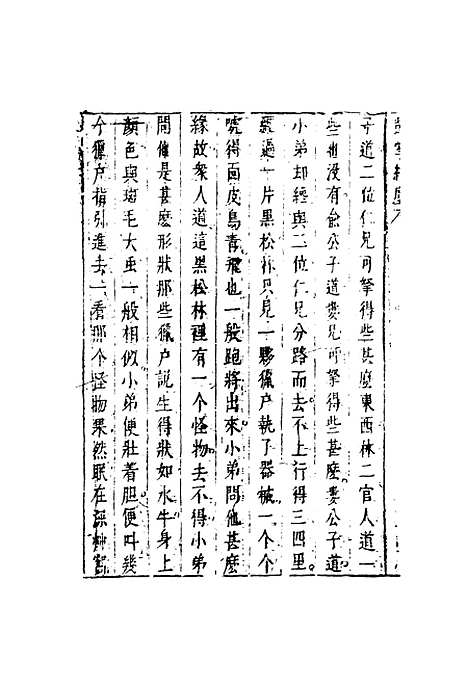 子道二位仁兄可拏得些甚麼東西林二官人道一
些也没有俞公子道婁兄可拏得些甚麼婁公子道
小弟却經與二位仁兄分路而去不上行得三四里
過一片黑松林只見一夥獵户執了器械一個個
唬得面皮鳥青飛也一般跑將出來小弟問他甚麼
緣故衆人道這黑松林裡有一个怪物去不得小弟
問他是甚麽形狀那些獵户説生得狀如水牛身上
顔色與斑毛大虫一般相似小弟便壯着胆便叫幾
个獵户指引進去一看那个怪物果然眠在深林